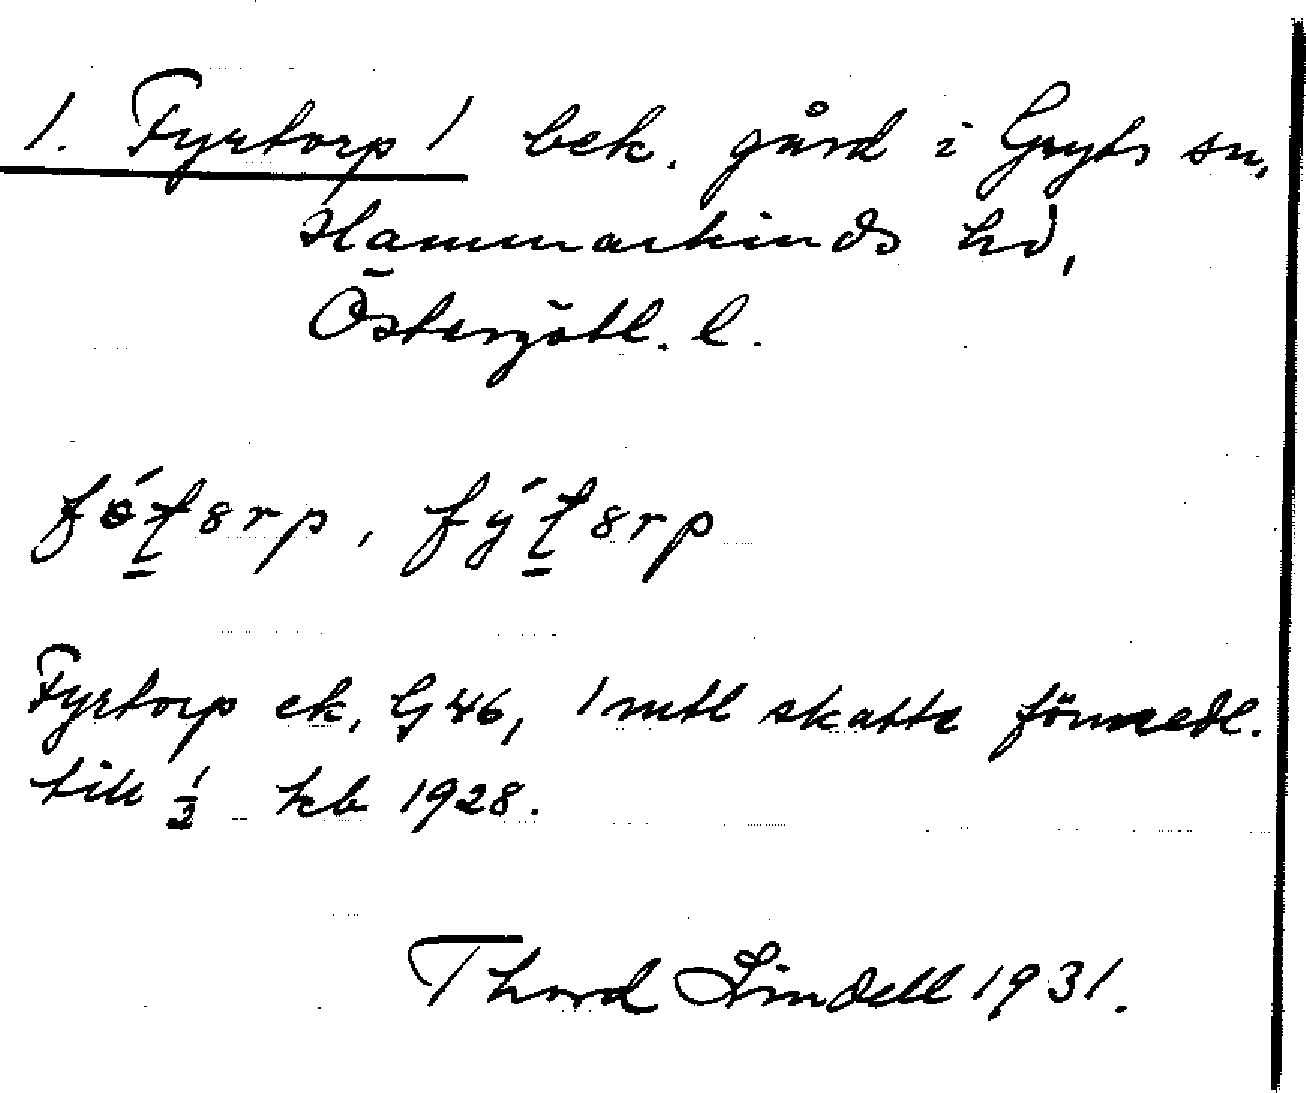 1. Fyrtorp 1 bek. gård i Gryts sn,
Hammarkinds hd,
Östergötl. l.
Fyrtorp ek. G 46, 1 mtl skatte förmedl.
till 1/2 hb 1928.
Thord Lindell 1931.